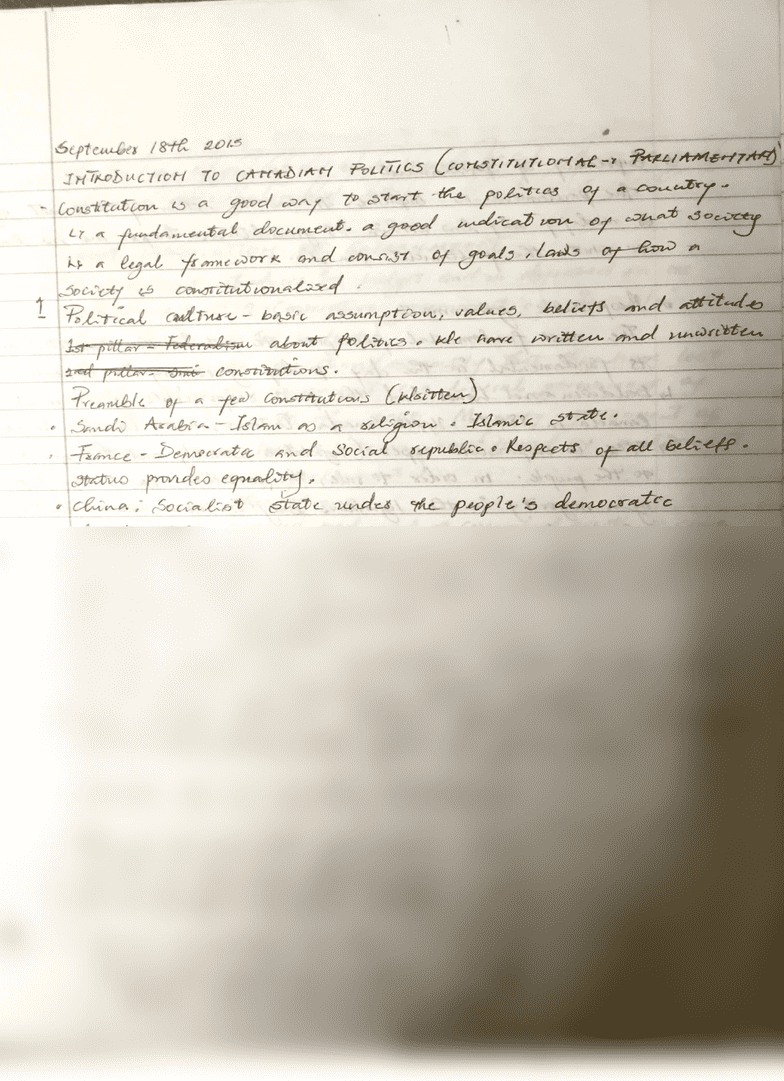 September 18th 2015
INTRODUCTION TO CANADIAN POLITICS (CONSTITUTIONAL → PARLIAMENTARY)
- Constitution is a good way to start the politics of a country.
is a fundamental document. a good indication of what society
is a legal framework and consist of goals, laws of how a
society is constitutionalized.
1 Political culture - basic assumption, values, beliefs and attitudes
1st pillar - Federalism about politics. We have written and unwritten
2nd pillar - constitutions.
Preamble of a few constitutions (written)
• Saudi Arabia - Islam as a religion. Islamic state.
• France - Democratic and Social republic. Respects of all beliefs.
status provides equality.
• China: Socialist state under the people's democratic